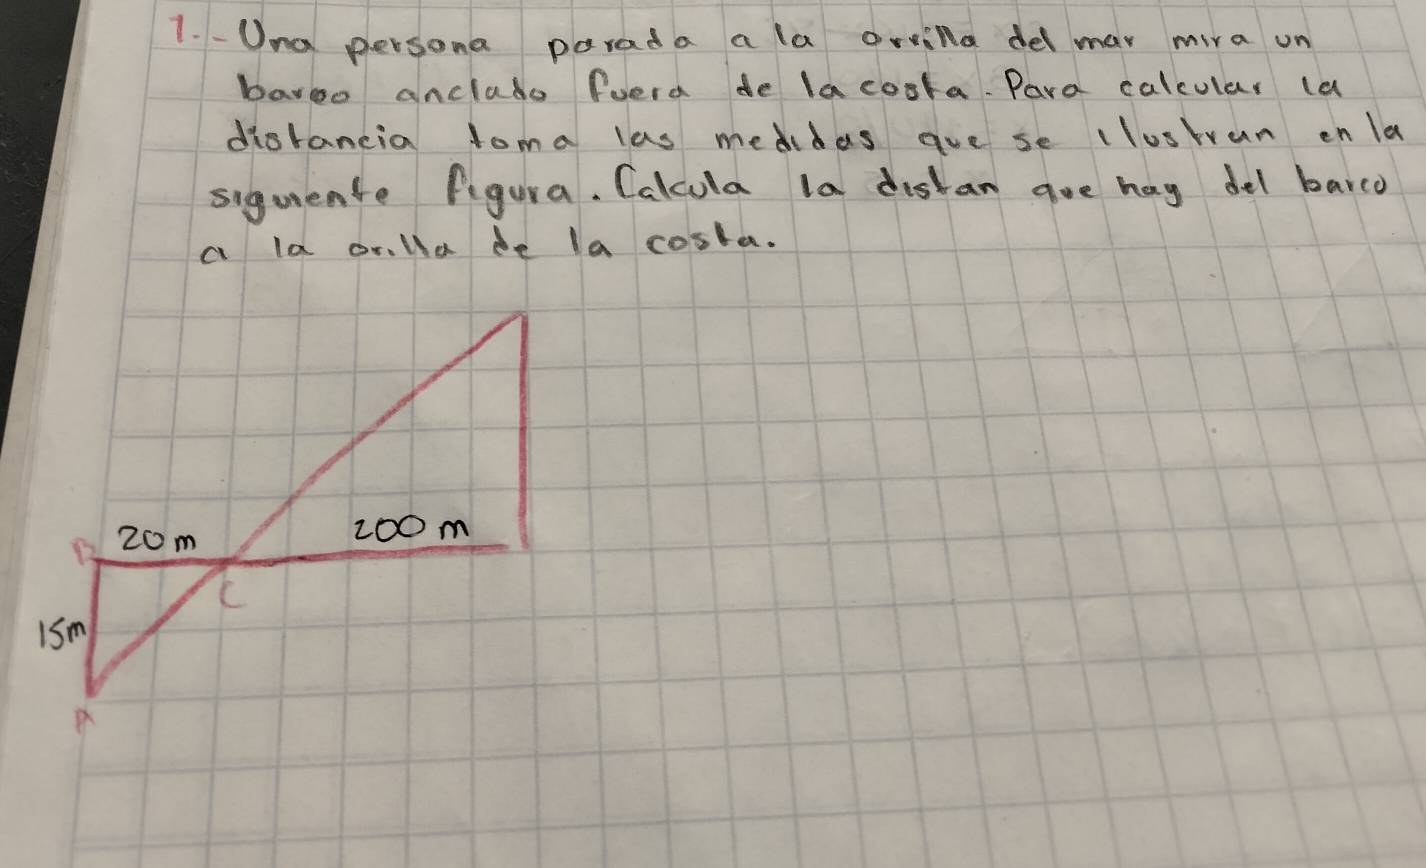 1.- Una persona parada a la orilla del mar mira un
barco anclado fuera de la costa. Para calcular la
distancia toma las medidas que se ilustran en la
siguiente figura. Calcula la distan que hay del barco
a la orilla de la costa.
20 m
200 m
C
15m
A